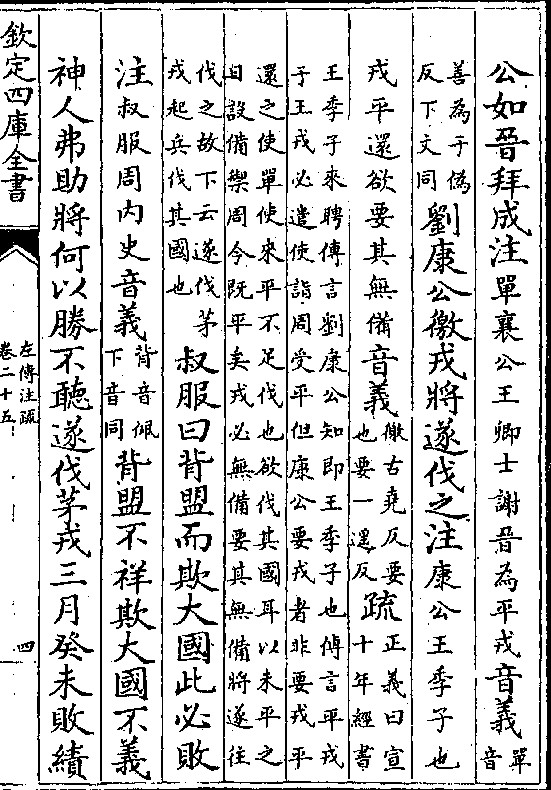 公如晉拜成注單襄公王卿士謝晉為平戎音義單
音
善為于偽
反下文同
劉康公徼戎將遂伐之注康公王季子也
戎平還欲要其無備音義
徼古堯反要
也要一遥反
疏
正義曰宣
十年經書
王季子來聘傳言劉康公知即王季子也傳言平戎
于王戎必遣使詣周受平但康公要戎者非要戎平
還之使單使來平不足伐也欲伐其國耳以未平之
日設備禦周今既平矣戎必無備要其無備將遂往
伐之故下云遂伐茅
戎起兵伐其國也
叔服曰背盟而欺大國此必敗
注叔服周内史音義
背音佩
下音同
背盟不祥欺大國不義
神人弗助將何以勝不聽遂伐茅戎三月癸未敗績
欽定四庫全書
左傳注疏
卷二十五
四